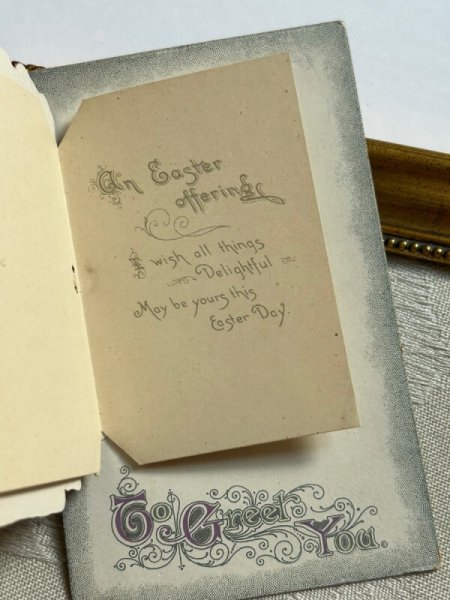 An Easter
offering
I wish all things
Delightful
May be yours this
Easter Day.
To Greet
You.